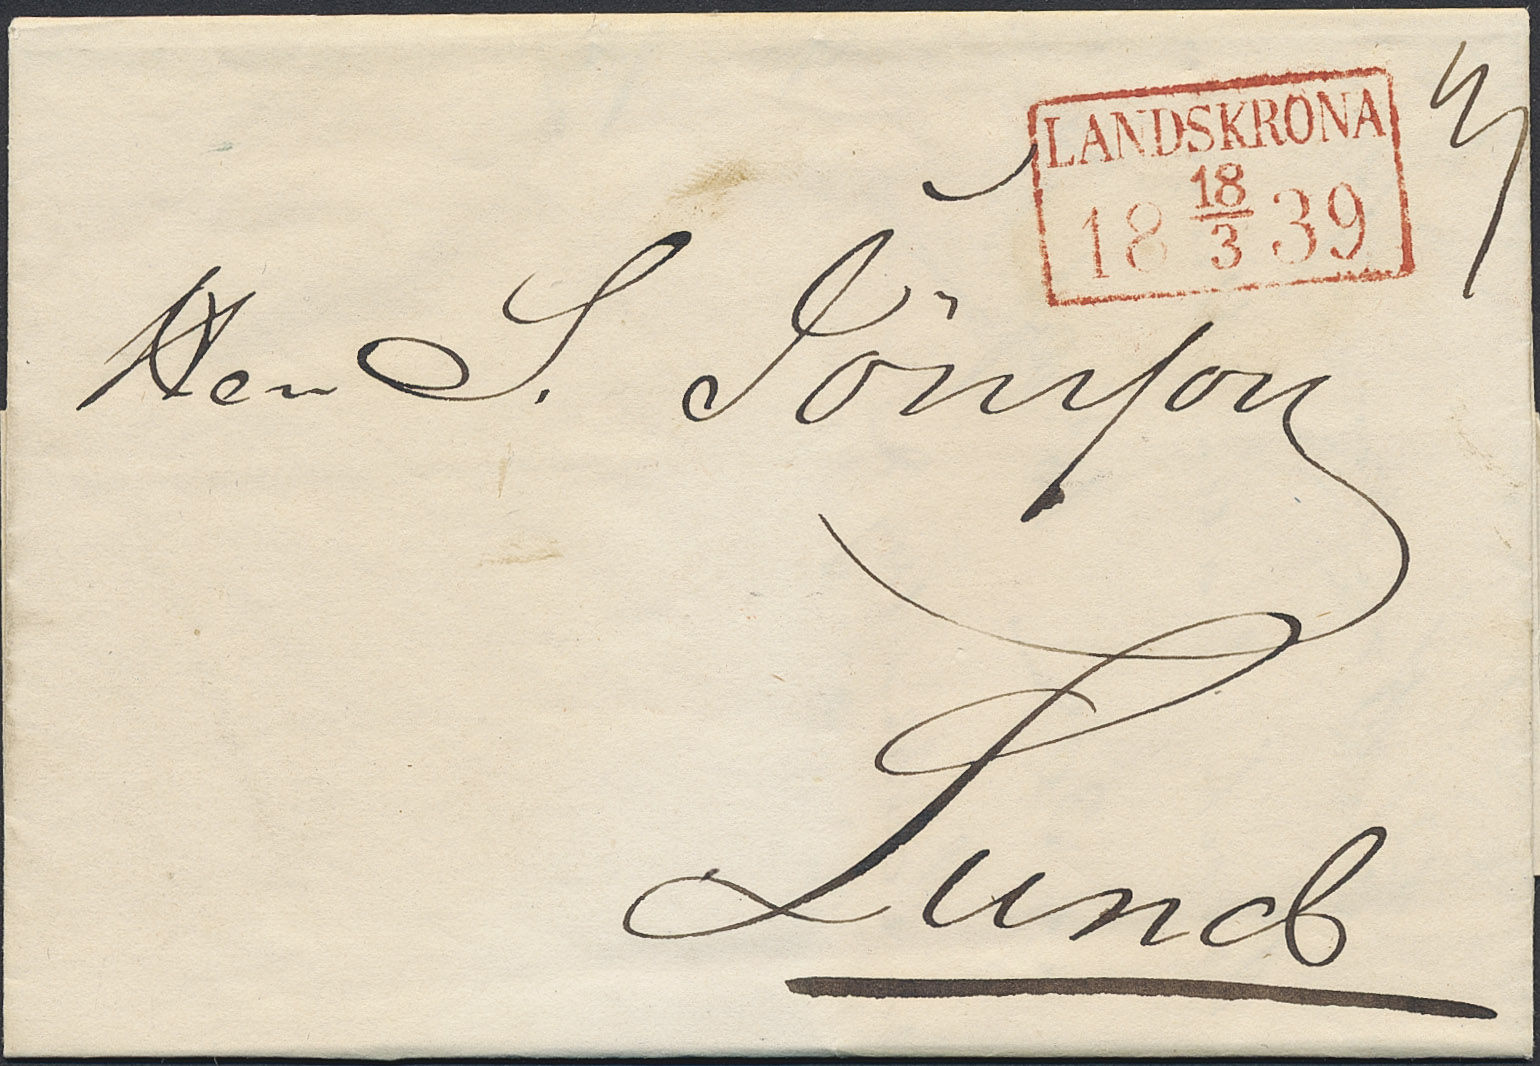 LANDSKRONA
18 18/3 39
Herr S. Jönsson
Lund